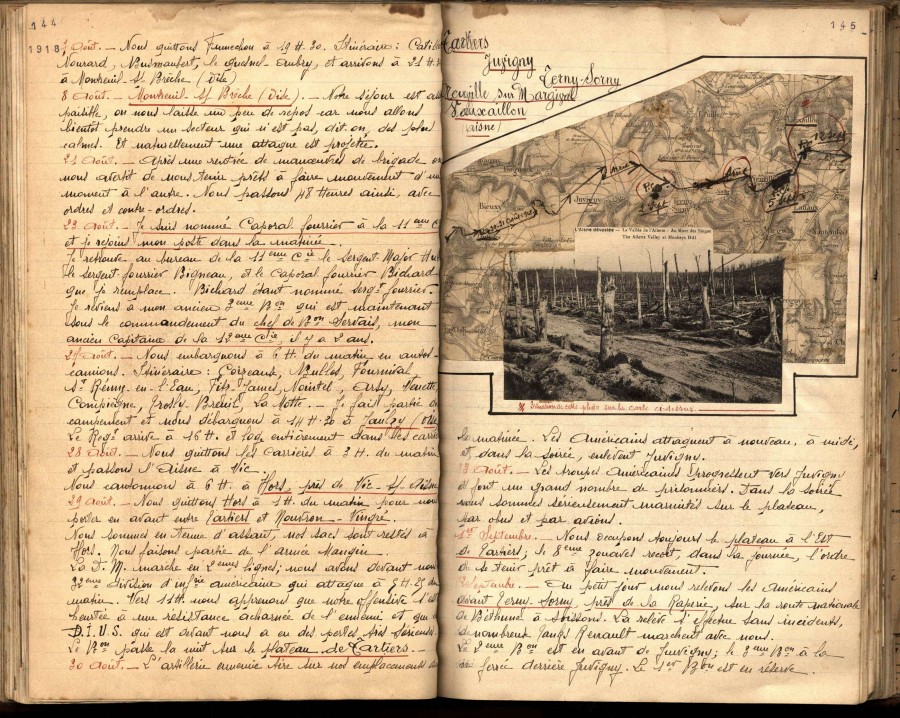 144
1918
7 Août. - Nous quittons Fumechon à 19 H. 30. Itinéraire: Catil
Nourard, Wuimaubert, le Quesnel-Aubry, et arrivons à 21 H. 30
à Montreuil-s/-Brèche (Oise)
8 Août. - Montreuil-s/-Brèche (Oise). - Notre séjour est as
paisible, on nous laisse un peu de repos car nous allons
bientôt prendre un secteur qui n'est pas, dit-on, des plus
calmes. Et naturellement une attaque est projetée.
21 Août. - Après une rentrée de manœuvres de brigade on
nous avertit de nous tenir prêts à faire mouvement d'un
moment à l'autre. Nous passons 48 heures ainsi, avec
ordres et contre-ordres.
23 Août. - Je suis nommé Caporal fourrier à la 11eme C
et je rejoins mon poste dans la matinée.
Je retrouve au bureau de la 11eme Cie le Sergent Major
le sergent fourrier Bigneau, et le Caporal fourrier Bichard
que je remplace. Bichard étant nommé sergt fourrier.
Je reviens à mon ancien 3eme Bon qui est maintenant
sous le commandement du chef de Bon Servais, mon
ancien Capitaine de la 12eme Cie, il y a 2 ans.
27 Août. - Nous embarquons à 6 H. du matin en autos-
camions. Itinéraire: Fournival,
St Rémy-en-l'Eau, Fitz-James, Nointel, Arsy, Venette,
Compiègne, Trosly-Breuil, La Motte. - Je fais partie du
campement et nous débarquons à 14 H 30 à Jaulzy Oise
Le Regt arrive à 16 H. et loge entièrement dans les carriè
28 Août. - Nous quittons les Carrières à 3 H. du matin
et passons l'Aisne à Vic.
Nous cantonnons à 6 H. à Hors, près de Vic-s/-Aisne
29 Août. - Nous quittons Hors à 1 H. du matin pour nous
porter en avant entre Tartiers et Nouvron-Vingré.
Nous sommes en tenue d'assaut, nos sacs sont restés à
Hors. Nous faisons partie de l'armée Mangin.
La D.M. marche en 2emes lignes; nous avons devant nous
32eme Division d'infie américaine qui attaque à 5 H. 25 du
matin. Vers 11 H. nous apprenons que notre offensive s'est
heurtée à une résistance acharnée de l'ennemi et que
D.I.U.S. qui est devant nous a eu des pertes très sérieuses.
Le Bon passe la nuit sur le plateau de Tartiers. -
30 Août. - L'artillerie ennemie tire sur nos emplacements
145
Tartiers
Juvigny
Terny-Sorny
Neuville sur Margival
Vauxaillon
(Aisne)
Bieuxy
Juvigny
L'Aisne dévastée - La Vallée de l'Ailette - Au Mont des Singes
The Ailette Valley at Monkeys Hill
Situation de cette photo sur la carte ci-dessus.
la matinée. Les Américains attaquent à nouveau, à midi,
et, dans la soirée, enlèvent Juvigny.
Août. - Les troupes Américaines progressent vers Juvigny
et font un grand nombre de prisonniers. Dans la soirée
nous sommes sérieusement marmités sur le plateau,
par obus et par avions.
1er Septembre. - Nous occupons toujours le plateau à l'Est
de Tartiers; le 8eme zouaves reçoit, dans la journée, l'ordre
de se tenir prêt à faire mouvement.
Septembre. - Au petit jour nous relevons les Américains
devant Terny-Sorny, près de la Raperie, sur la route nationale
de Béthune à Soissons. La relève s'effectue sans incidents,
de nombreux tanks Renault marchent avec nous.
Le 2eme Bon est en avant de Juvigny; le 3eme Bon à la
voie ferrée derrière Juvigny. Le 1er Bon est en réserve.